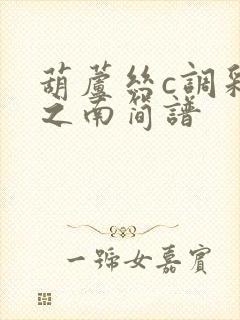 葫蘆絲c調彩
之南簡譜
一號女嘉賓